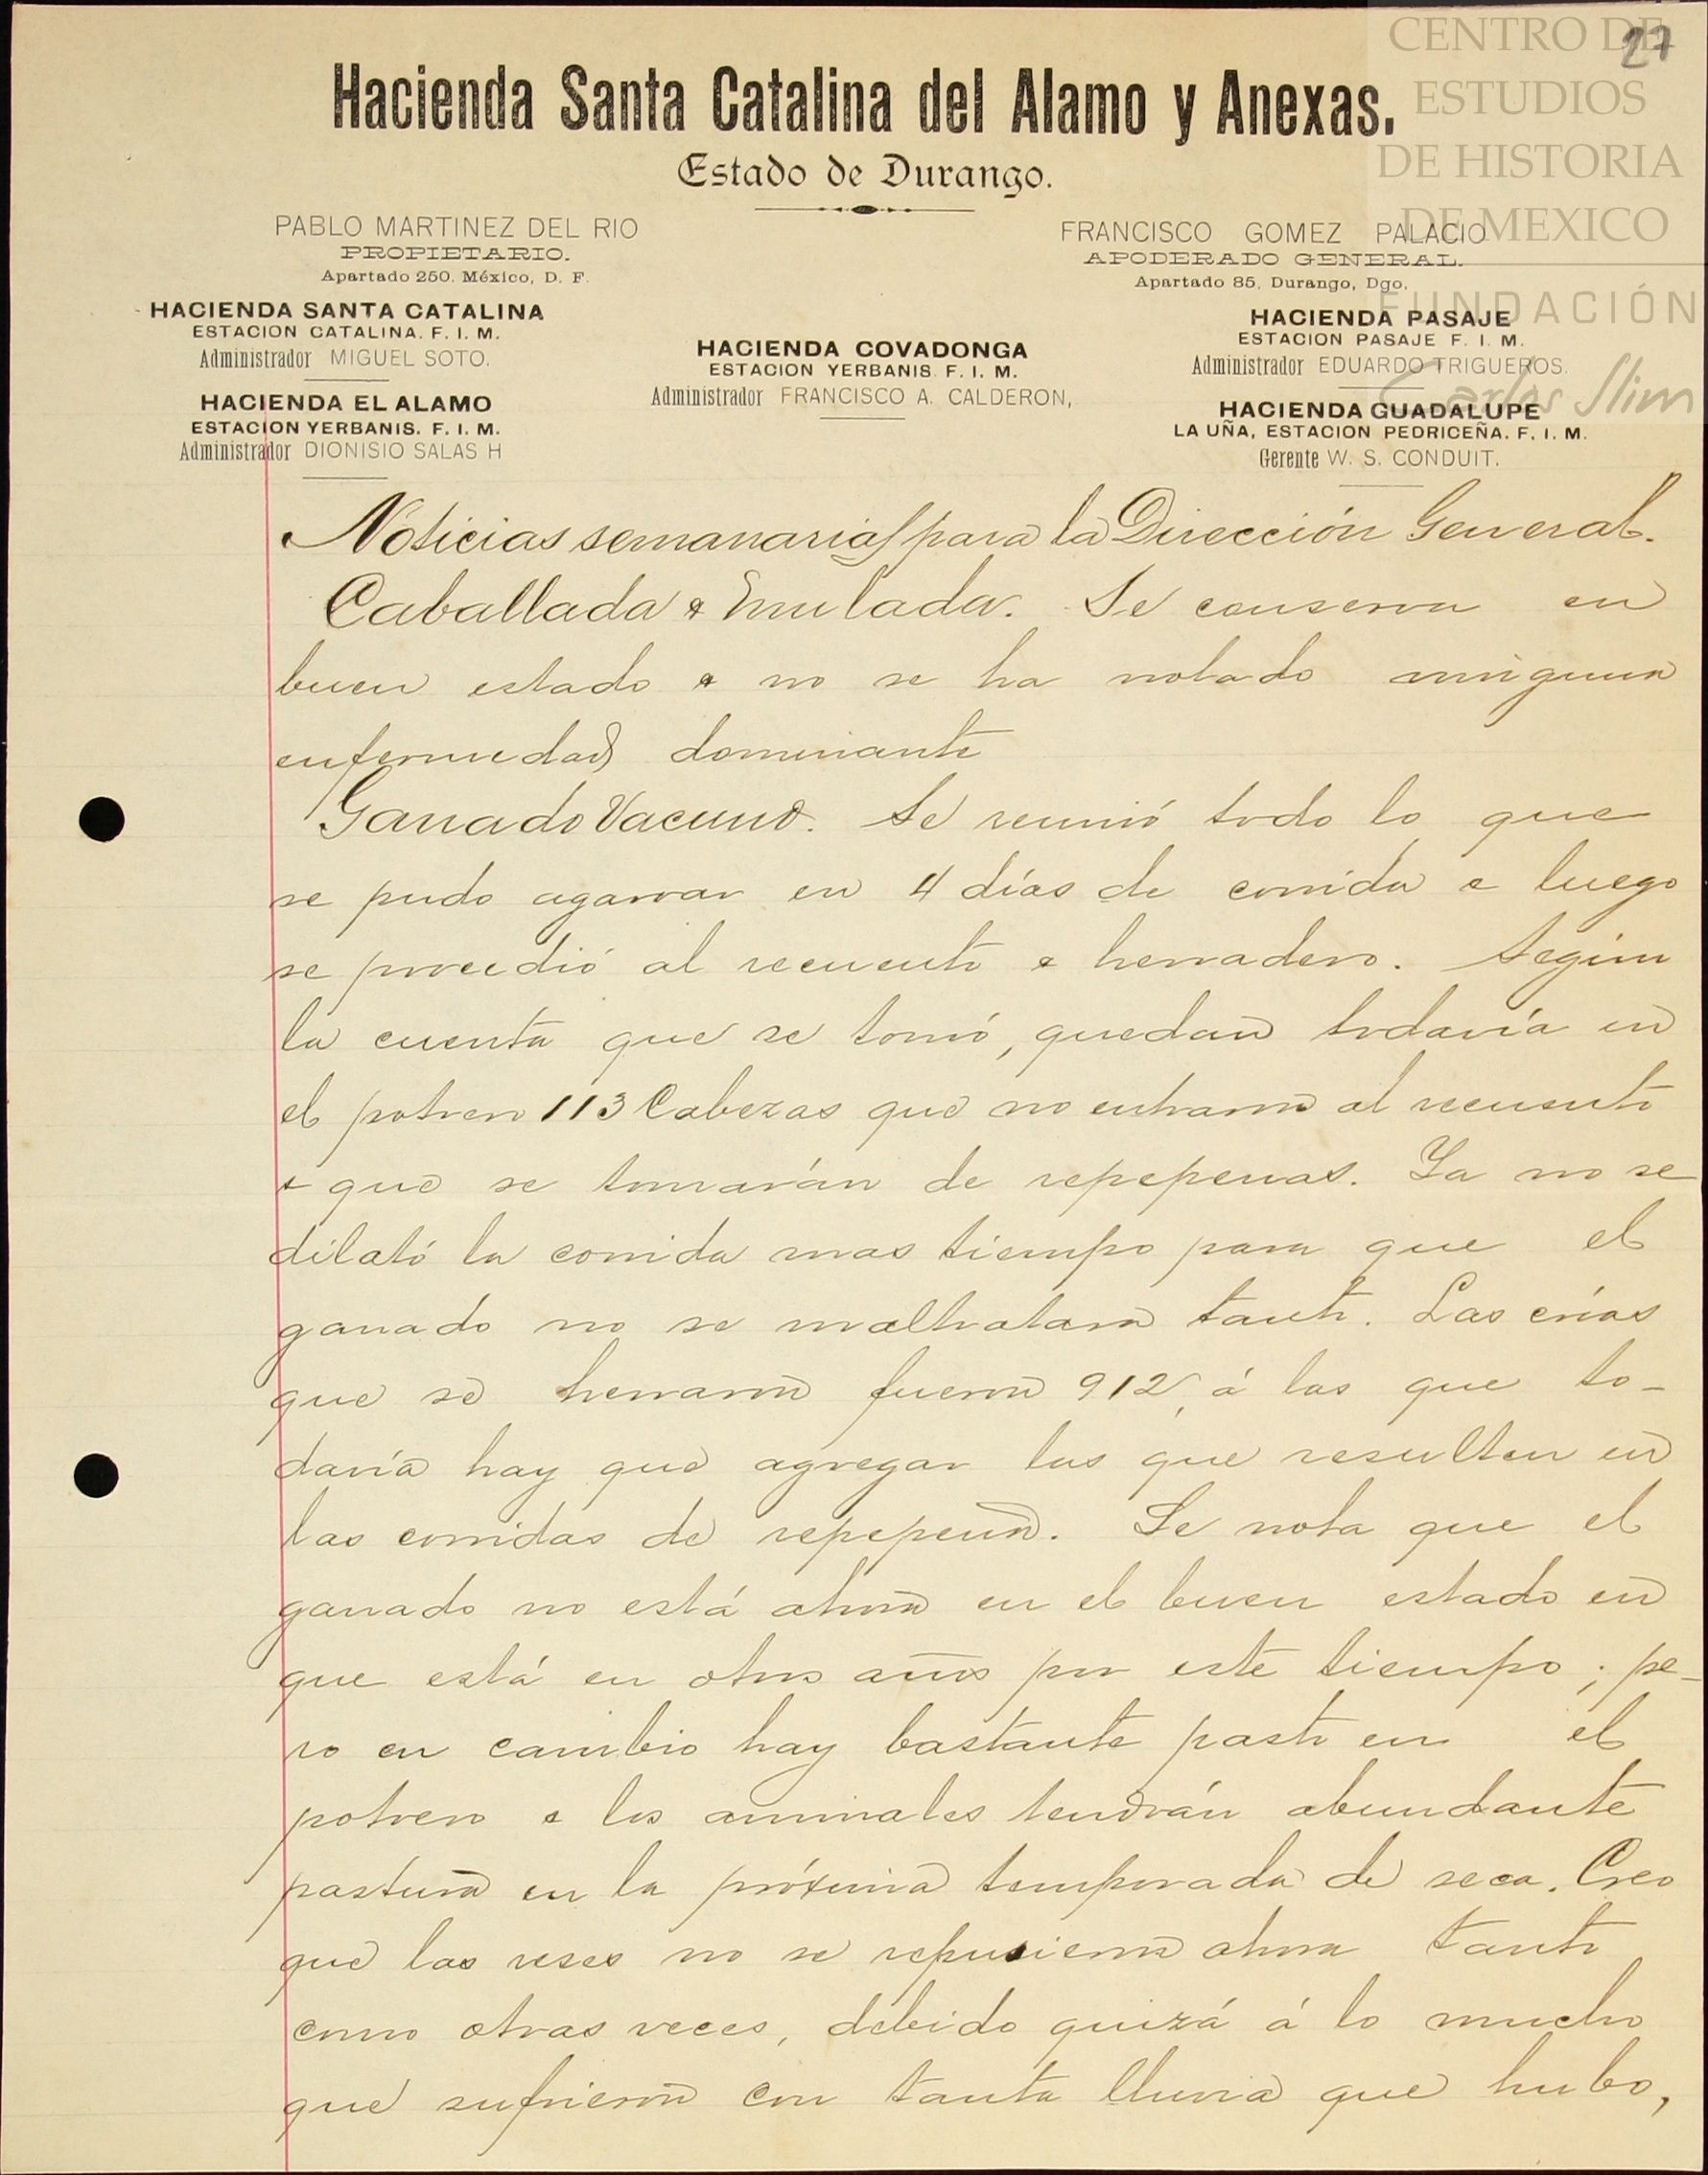 27
CENTRO DE
ESTUDIOS
DE HISTORIA
DE MEXICO
FUNDACIÓN
Carlos Slim
Hacienda Santa Catalina del Alamo y Anexas.
Estado de Durango.
PABLO MARTINEZ DEL RIO
PROPIETARIO.
Apartado 250. México, D. F.
HACIENDA SANTA CATALINA
ESTACION CATALINA. F. I. M.
Administrador MIGUEL SOTO.
HACIENDA EL ALAMO
ESTACION YERBANIS. F. I. M.
Administrador DIONISIO SALAS H
HACIENDA COVADONGA
ESTACION YERBANIS F. I. M.
Administrador FRANCISCO A. CALDERON,
FRANCISCO GOMEZ PALACIO
APODERADO GENERAL.
Apartado 85, Durango, Dgo.
HACIENDA PASAJE
ESTACION PASAJE F. I. M.
Administrador EDUARDO TRIGUEROS.
HACIENDA GUADALUPE
LA UÑA, ESTACION PEDRICEÑA. F. I. M.
Gerente W. S. CONDUIT.
Noticias semanarias para la Dirección General.
Caballada & mulada. Se conserva en
buen estado & no se ha notado ninguna
enfermedad dominante
Ganado Vacuno. Se reunió todo lo que
se pudo agarrar en 4 días de corrida & luego
se procedió al recuento & herradero. Según
la cuenta que se tomó, quedan todavía en
el potrero 113 Cabezas que no entraron al recuento
& que se tomarán de repepenas. Ya no se
dilató la corrida mas tiempo para que el
ganado no se maltratara tanto. Las crías
que se herraron fueron 912, á las que to-
davía hay que agregar las que resulten en
las corridas de repepena. Se nota que el
ganado no está ahora en el buen estado en
que está en otros años por este tiempo; pe-
ro en cambio hay bastante pasto en el
potrero & los animales tendrán abundante
pastura en la próxima temporada de seca. Creo
que las reses no se repusieron ahora tanto
como otras veces, debido quizá á lo mucho
que sufrieron con tanta lluvia que hubo,